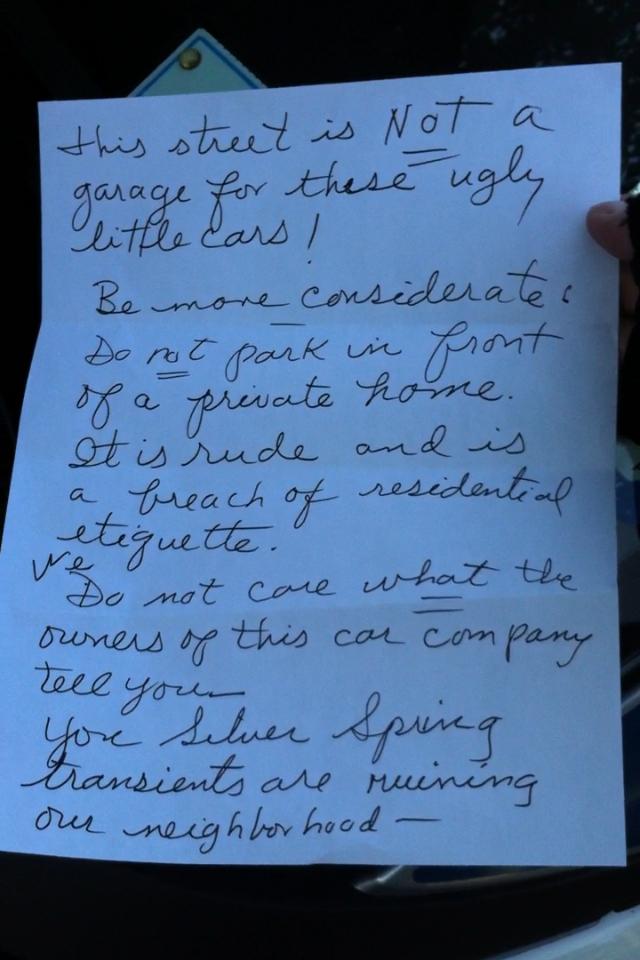 This street is NOT a
garage for these ugly
little cars!
Be more considerate:
Do not park in front
of a private home.
It is rude and is
a breach of residential
etiquette.
We
Do not care what the
owners of this car company
tell you—
You Silver Spring
transients are ruining
our neighborhood —